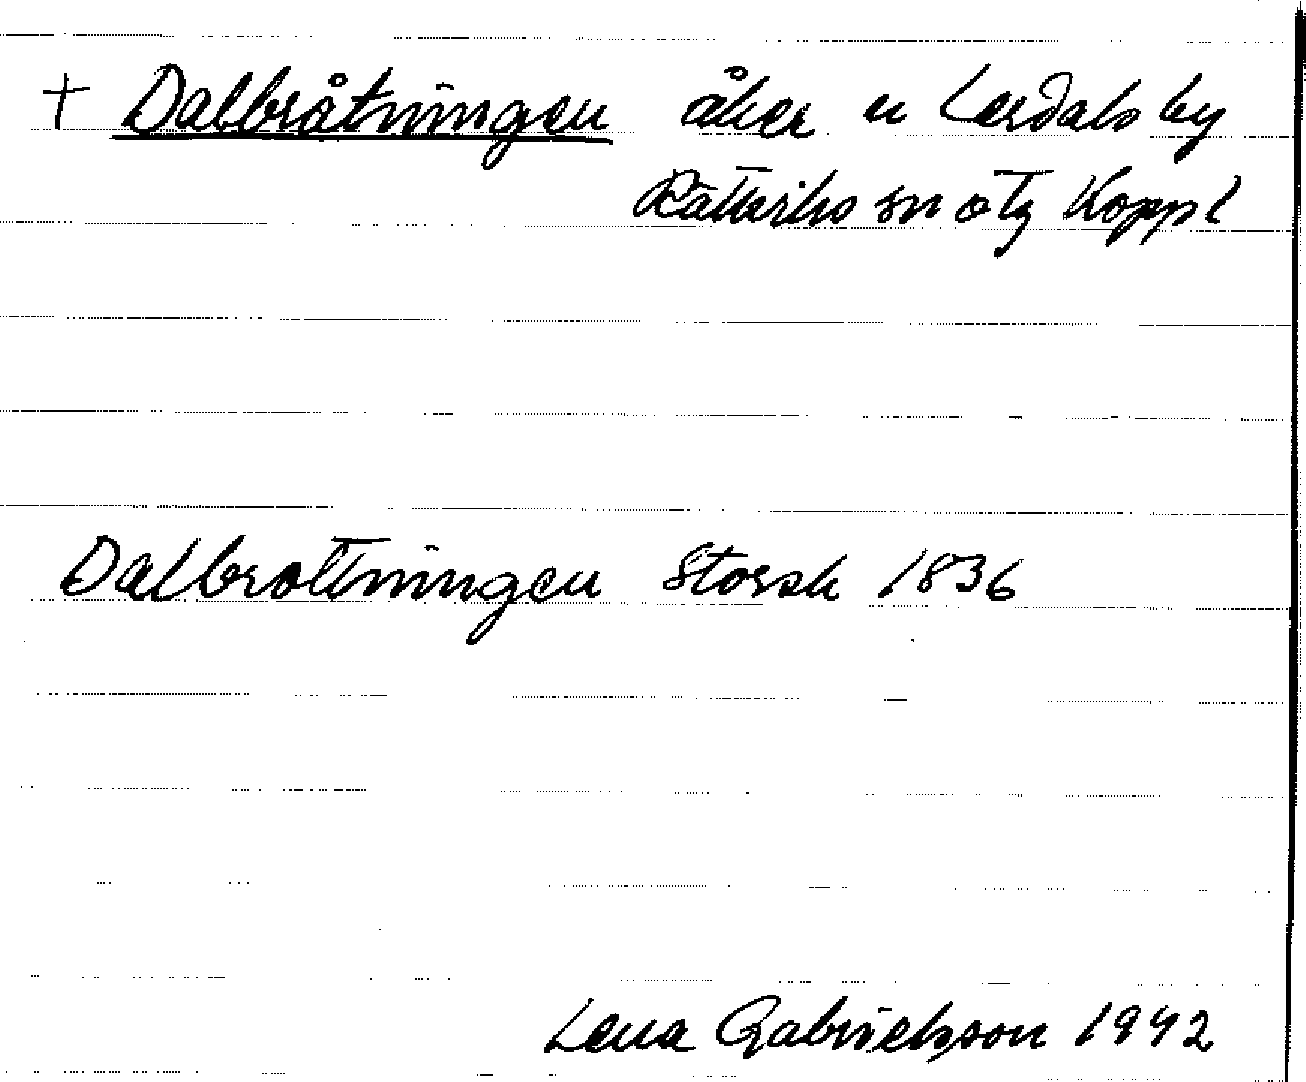 † Dalbråtningen åker u Lerdals by
Rättviks sn o tg Koppl
Dalbrottningen Storsk 1836
Lena Gabrielsson 1942